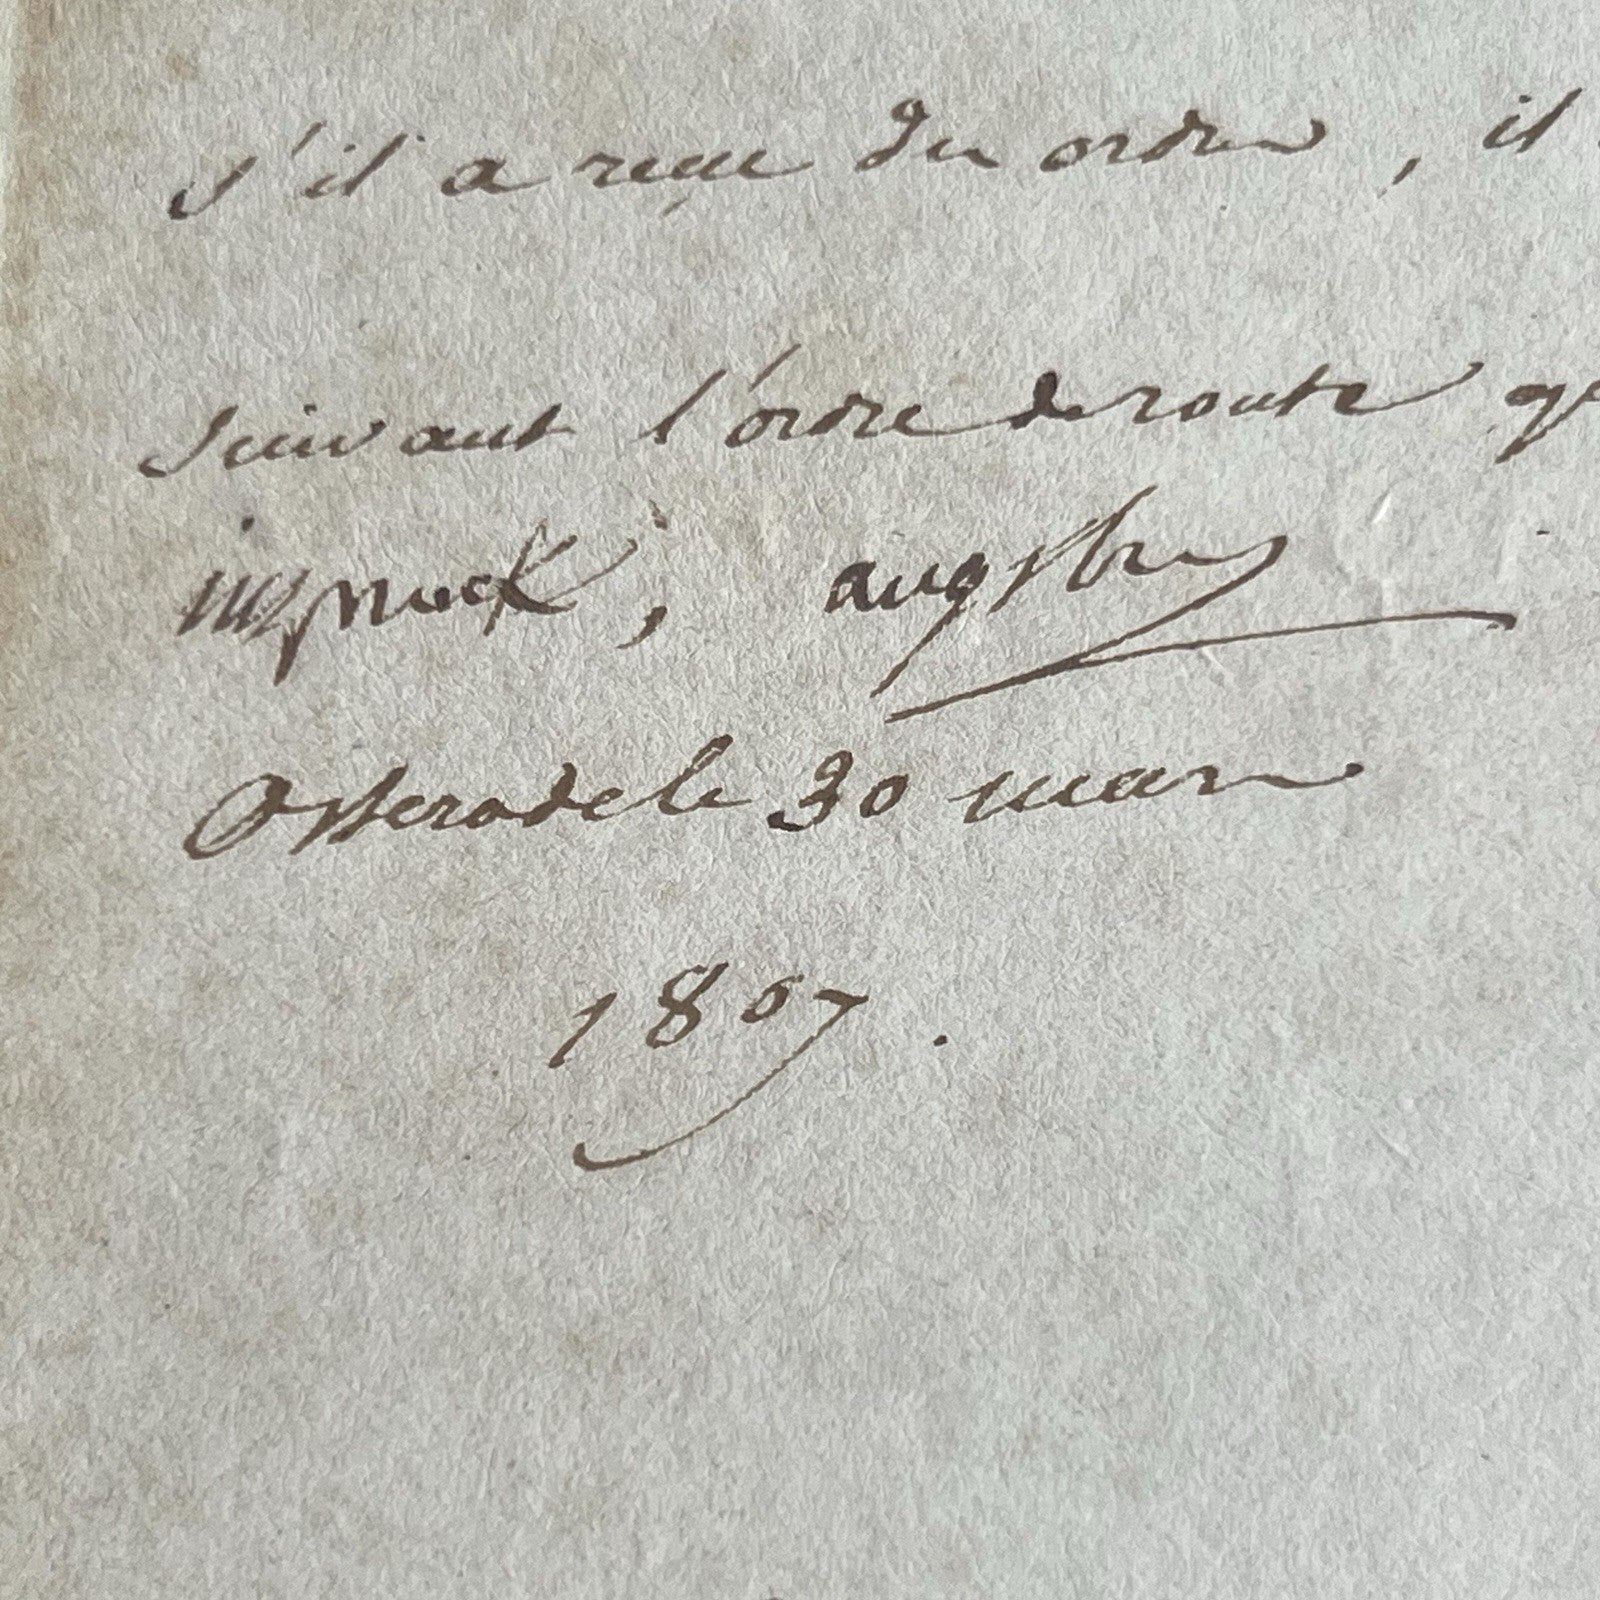 s'il a reçu des ordres, il
suivant l'ordre de route
inspruck, augsbourg
Osterode le 30 mars
1807.